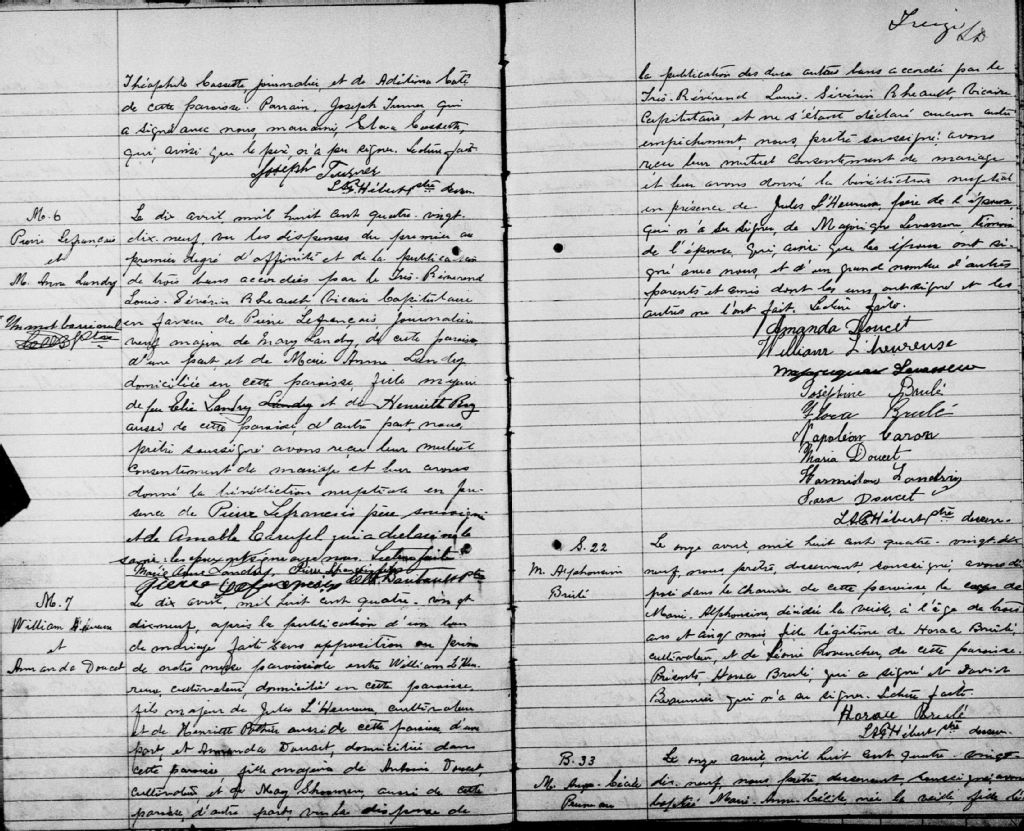 Théophile Cossette journalier et de Adelina Coté
de cette paroisse. Parrain, Joseph Turner qui
a signé avec nous, marraine, Clara Cossette,
qui, ainsi que le père, n'a pu signer. Lecture faite
Joseph Turner
Hébert ptre desserv.
M. 6
Pierre Lefrancois
et
M. Anna Landry
Le dix avril mil huit cent quatre-vingt
dix-neuf, vu les dispenses du premier au
premier degré d'affinité et de la publication
de trois bans accordées par le Très-Révérend
Louis-Sévérin Rheault Vicaire Capitulaire
en faveur de Pierre Lefrançois journalier
veuf majeur de Mary Landry, de cette paroisse
d'une part, et de Marie Anne Landry
domiciliée en cette paroisse, fille majeure
de feu Elie Landry Landry et de Henriette Roy
aussi de cette paroisse, d'autre part, nous,
prêtre soussigné avons reçu leur mutuel
consentement de mariage et leur avons
donné la bénédiction nuptiale en pré-
sence de Pierre Lefrancois père, soussigné
et de Amable Carufel qui a déclaré ne
signer. les époux ont signé avec nous. Lecture faite
Marie Anna Landry
Pierre
M. 7
William L'Heureux
et
Amanda Doucet
Le dix avril, mil huit cent quatre-vingt
dix-neuf, après la publication d'un ban
de mariage faite sans opposition au prône
de notre messe paroissiale entre William L'Heu-
reux, cultivateur, domicilié en cette paroisse,
fils majeur de Jules L'Heureux, cultivateur
et de Henriette aussi de cette paroisse d'une
part, et Amanda Doucet, domiciliée dans
cette paroisse, fille majeure de Antoine Doucet,
cultivateur et de Mary aussi de cette
paroisse, d'autre part, vu la dispense de
Treize
la publication des deux autres bans accordée par le
Très-Révérend Louis-Sévérin Rheault, Vicaire
Capitulaire, et ne s'étant déclaré aucun autre
empêchement, nous, prêtre soussigné, avons
reçu leur mutuel consentement de mariage
et leur avons donné la bénédiction nuptiale
en présence de Jules L'Heureux frère de l'époux,
qui n'a su signer, de Majorique Levasseur, témoin
de l'épouse, qui, ainsi que les époux ont si-
gné avec nous, et d'un grand nombre d'autres
parents et amis dont les uns ont signé et les
autres ne l'ont fait. Lecture faite.
Amanda Doucet
William L'heureuse
Levasseur
Joséphine Brulé
Flora Brulé
Napoléon Caron
Maria Doucet
Hormidas Landry
Sara Doucet
Hébert ptre desserv.
S. 22
M. Alphonsine
Brulé
Le onze avril, mil huit cent quatre-vingt-dix
neuf, nous, prêtre desservant soussigné, avons dé-
posé dans le charnier de cette paroisse, le corps de
Marie-Alphonsine, décédée la veille, à l'âge de trois
ans et cinq mois, fille légitime de Horace Brulé,
cultivateur, et de Léonie de cette paroisse.
Présents Horace Brulé, qui a signé et
qui n'a su signer. Lecture faite.
Horace Brulé
Hébert ptre desserv.
B. 33
M. Cécile
Le onze avril, mil huit cent quatre-vingt-
dix-neuf, nous prêtre desservant soussigné, avons
baptisé Marie-Anne-Cécile, née la veille, fille lé-